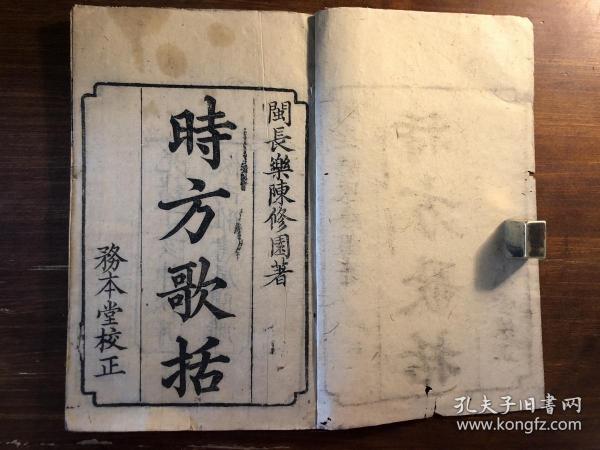 閩長樂陳修園著
時方歌括
務本堂校正
孔夫子旧書网
www.kongfz.com